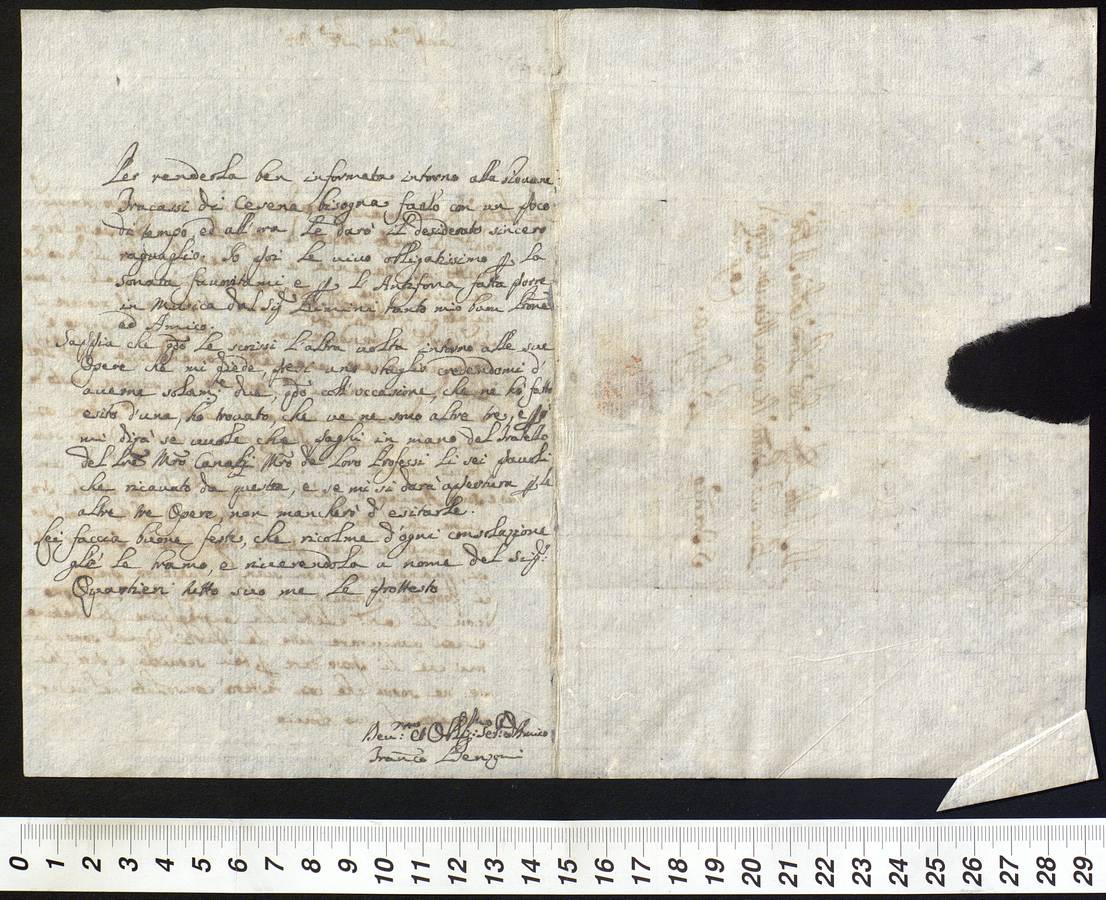 Per renderLa ben informata intorno alla Giovane
Fracassi di Cesena bisogna farlo con un poco
di tempo ed all'ora Le darò il desiderato sincero
raguaglio. Io poi Le vivo obligatissimo p La
Sonata favoritami e p L'Antifona fatta porre
in Musica dal Sig Rimini tanto mio buon Prone
ed Amico.
Sappia che qdo Le scrissi l'altra volta intorno alle sue
Opere che mi diede, presi uno sbaglio credendomi d'
averne solamte due, qdo coll'occasione, che ne hò fatto
esito d'una, hò trovato, che ve ne sono altre tre, e pò
mi dirà se vuole che paghi in mano del Fratello
del Pre Mro Mro de Loro Professi Li sei pauoli
che ricavato da questa, e se mi si darà apertura p le
altre tre Opere, non mancherò d'esitarle.
Lei faccia buone feste, che ricolme d'ogni consolazione
gliè le bramo, e riverendola a nome del Sig:
Quartieri tutto suo me Le protesto
Devmo: ed Obblmo: Ser: ed Amico
Franco Benzoni
0 1 2 3 4 5 6 7 8 9 10 11 12 13 14 15 16 17 18 19 20 21 22 23 24 25 26 27 28 29